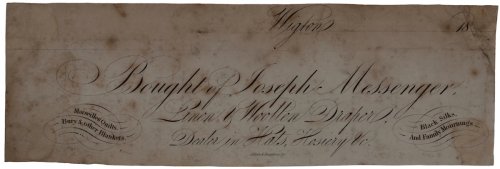 Wigton 18
Bought of Joseph Messenger,
Linen & Woollen Draper,
Dealer in Hats, Hosiery &c.
Marseilles Quilts,
Bury & other Blankets.
Black Silks,
And Family Mournings.